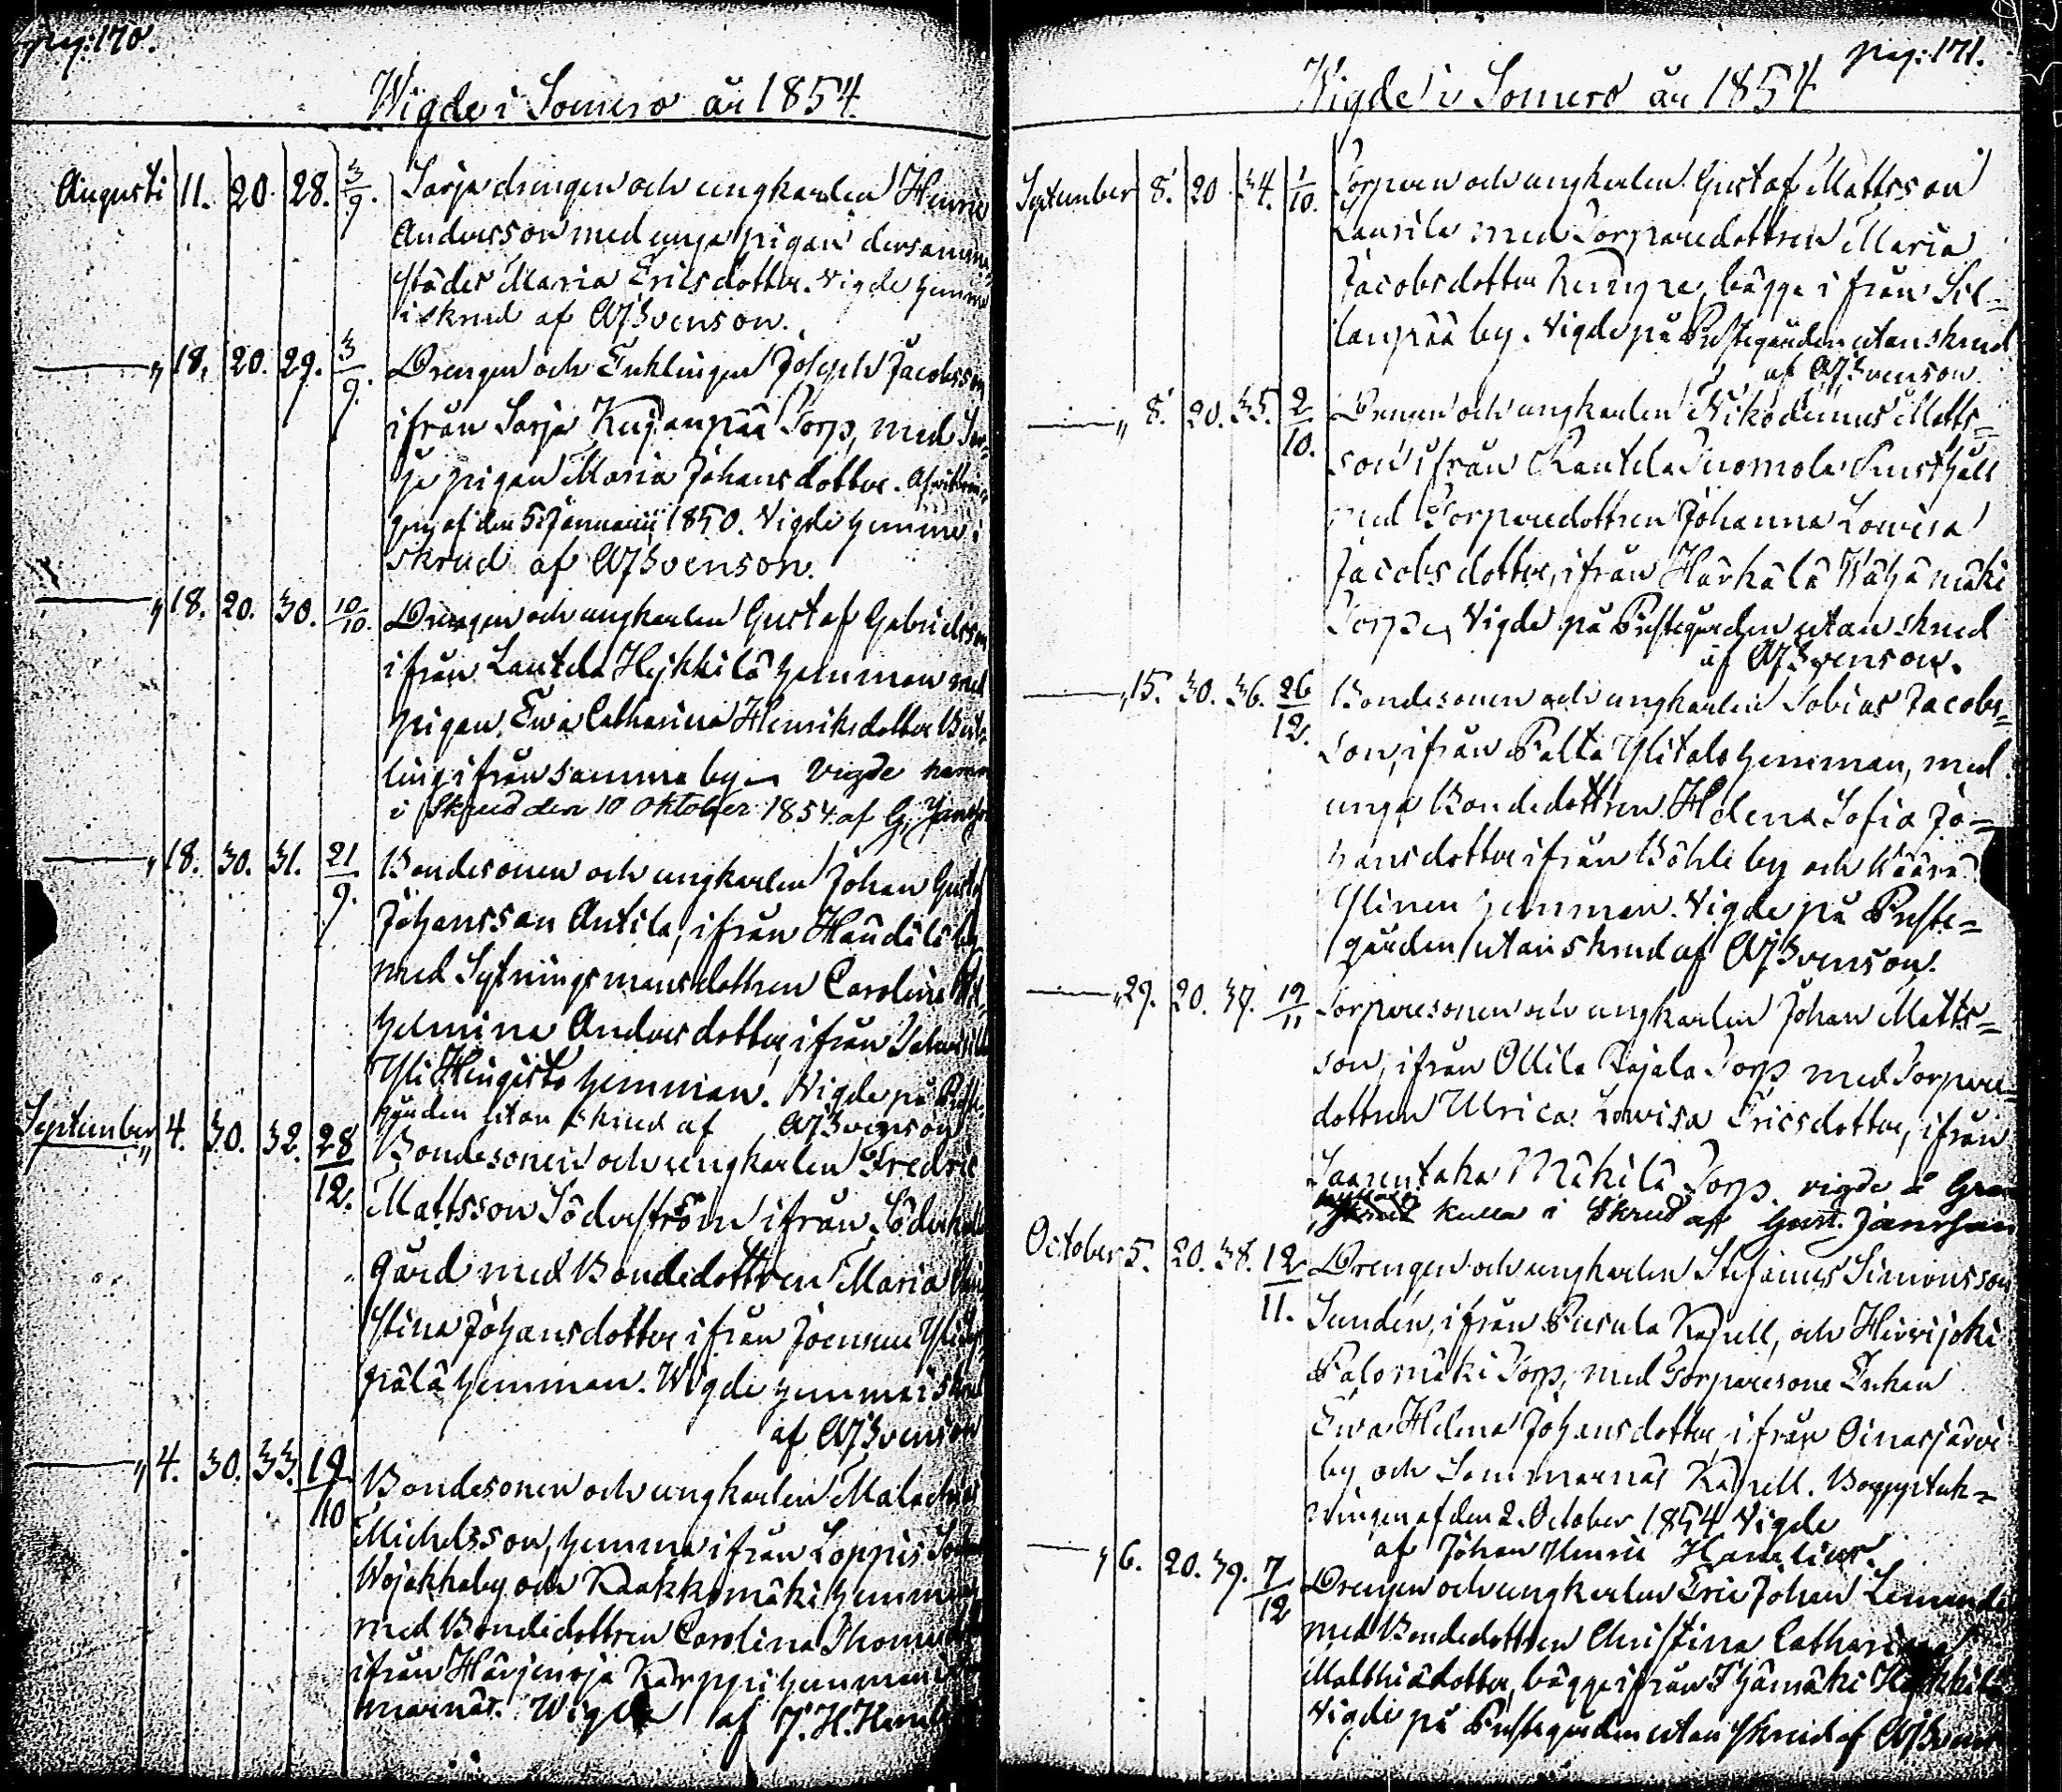 pag: 170.
Wigde i Somero år 1854.
Augusti 11. 20. 28. 3/9. Sarja drengen och ungkarlen Henric
Andersson med unga pigan dersamma-
städes Maria Ericsdotter. Vigde hemma
i skrud af AJSvenson.
—„ 18. 20. 29. 3/9. Drengen och Enklingen Joseph Jacobsson
ifrån Sarja Kujanpää Torp, med Sar-
ja pigan Maria Johansdotter.
af den 5 Januarii 1850. Vigde hemma i
skrud af AJSvenson.
—„ 18. 20. 30. 10/10. Drengen och ungkarlen Gustaf Gabrielsson
ifrån Lautela Hejkkilä hemman med
pigan Ewa Catharina Henriksdotter
ifrån samma by. Vigde hemma
i Skrud den 10 Oktober 1854. af G. Jans
—„ 18. 30. 31. 21/9. Bondesonen och ungkarlen Johan Gustaf
Johansson Antila, ifrån Haudälä by
med Sytningsmansdottren Carolina Wil-
helmina Andersdotter, ifrån
Yli Hingisto hemman. Vigde på Preste-
gården utan skrud af AJSvenson
September „ 4. 30. 32. 28/12. Bondesonen och ungkarlen Fredric
Mattsson Söderström ifrån
gård med Bondedottren Maria Chri-
stina Johansdotter ifrån Joensuu
pälä hemman. Wigde hemma i skrud
af AJSvenson
—„ 4. 30. 33. 19/10 Bondesonen och ungkarlen Malachias
Michelsson, hemma ifrån Loppis
Wojakkaby och Kaakkomäki hemman,
med Bondedottren Carolina Thomasd
ifrån Härjenoja Karppi hemman i
marnäs. Wigde af J. H.
pag: 171.
Wigde i Somero år 1854
September 8. 20. 34. 1/10. Torparen och ungkarlen Gustaf Mattsson
Laurila med Torparedottren Maria
Jacobsdotter bägge ifrån Sil-
lanpää by. Vigde på Prestegården utan skrud
af AJSvenson.
—„ 8. 20. 35. 2/10. Drengen och ungkarlen Nikodemus Matts-
son ifrån Rautela Tuomola Rusthåll
med Torparedottren Johanna Lowisa
Jacobsdotter, ifrån Härkälä Wähämäki
Torp. Vigde på Prestegården utan skrud
af AJSvenson.
—„ 15. 30. 36. 26/12. Bondesonen och ungkarlen Tobias Jacobs-
son, ifrån Palta Ylitalo hemman, med
unga Bondedottren Helena Sofia Jo-
hansdotter ifrån Pöhli by och Käärä
Ylinen hemman. Vigde på Preste-
gården utan skrud af AJSvenson.
—„ 29. 20. 37. 19/11 Torparesonen och ungkarlen Johan Matts-
son, ifrån Ollila Rajala Torp med Torpare-
dottren Ulrica Lowisa Ericsdotter, ifrån
Saarentaka Mäkilä Torp. vigde å Gran
kulla i Skrud af Gust. Jansson
October 5. 20. 38. 12/11. Drengen och ungkarlen Stefanus Simonsson
Sunden, ifrån Pusula Kapell, och Hirvijoki
Palomäki Torp, med Torparesone Enkan
Ewa Helena Johansdotter, ifrån Oinasjärvi
by och Sommarnäs Kapell. Bouppteck-
ningen af den 2. October 1854 Vigde
af Johan Henric
—„ 6. 20. 39. 7/12 Drengen och ungkarlen Eric Johan
med Bondedottren Christina Catharina
Matthiädotter, bägge ifrån Ihamäki Hejkkilä
Vigde på Prestegården utan skrud af AJSvenson